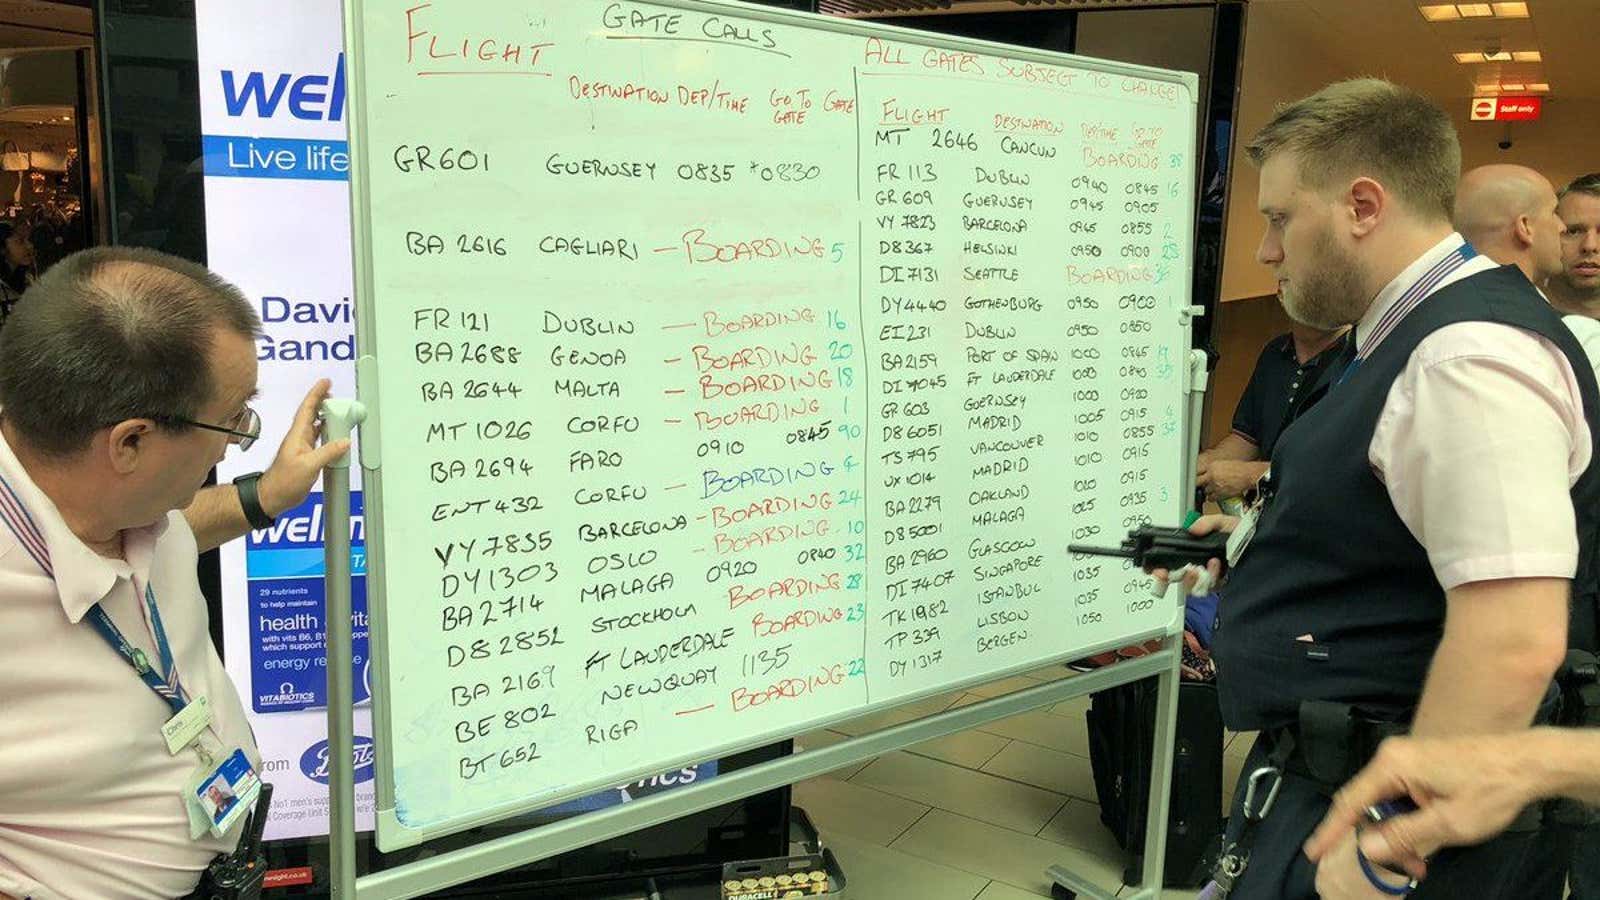 GATE CALLS
FLIGHT
DESTINATION DEP/TIME GO TO GATE GATE
GR601 GUERNSEY 0835 *0830
BA 2616 CAGLIARI — BOARDING 5
FR 121 DUBLIN — BOARDING 16
BA 2688 GENOA — BOARDING 20
BA 2644 MALTA — BOARDING 18
MT 1026 CORFU — BOARDING 1
BA 2694 FARO 0910 0845 90
ENT 432 CORFU — BOARDING
VY 7835 BARCELONA — BOARDING 24
DY1303 OSLO — BOARDING 10
BA 2714 MALAGA 0920 0840 32
D8 2852 STOCKHOLM BOARDING 28
BA 2169 FT LAUDERDALE BOARDING 23
BE 802 NEWQUAY 1135
BT 652 RIGA — BOARDING 22
ALL GATES SUBJECT TO CHANGE!
FLIGHT DESTINATION DEP/TIME GO TO GATE
MT 2646 CANCUN BOARDING 38
FR 113 DUBLIN 0940 0845 16
GR 609 GUERNSEY 0945 0905
VY 7823 BARCELONA 0945 0855 2
D8 367 HELSINKI 0950 0900 25
DI 7131 SEATTLE BOARDING
DY4440 GOTHENBURG 0950 0900 1
EI 231 DUBLIN 0950 0850
BA2159 PORT OF SPAIN 1000 0845 19
DI 7045 FT LAUDERDALE 1000 0840
GR 603 GUERNSEY 1000 0920
D8 6051 MADRID 1005 0915 4
TS 795 VANCOUVER 1010 0855
UX 1014 MADRID 1010 0915
BA 2279 OAKLAND 1020 0915
D8 5001 MALAGA 1025 0935 3
BA 2960 GLASGOW 1030 0950
DI 7407 SINGAPORE 1035
TK 1982 ISTANBUL 1035 0945
TP 339 LISBON 1050 1000
DY 1317 BERGEN
Staff only
wel
Live life
Davi
Gand
wellm
29 nutrients
to help maintain
health
with vits B6, B1
which support
energy re
VITABIOTICS
rom Boots
No1 men's
Coverage Unit
DURACELL
Chris